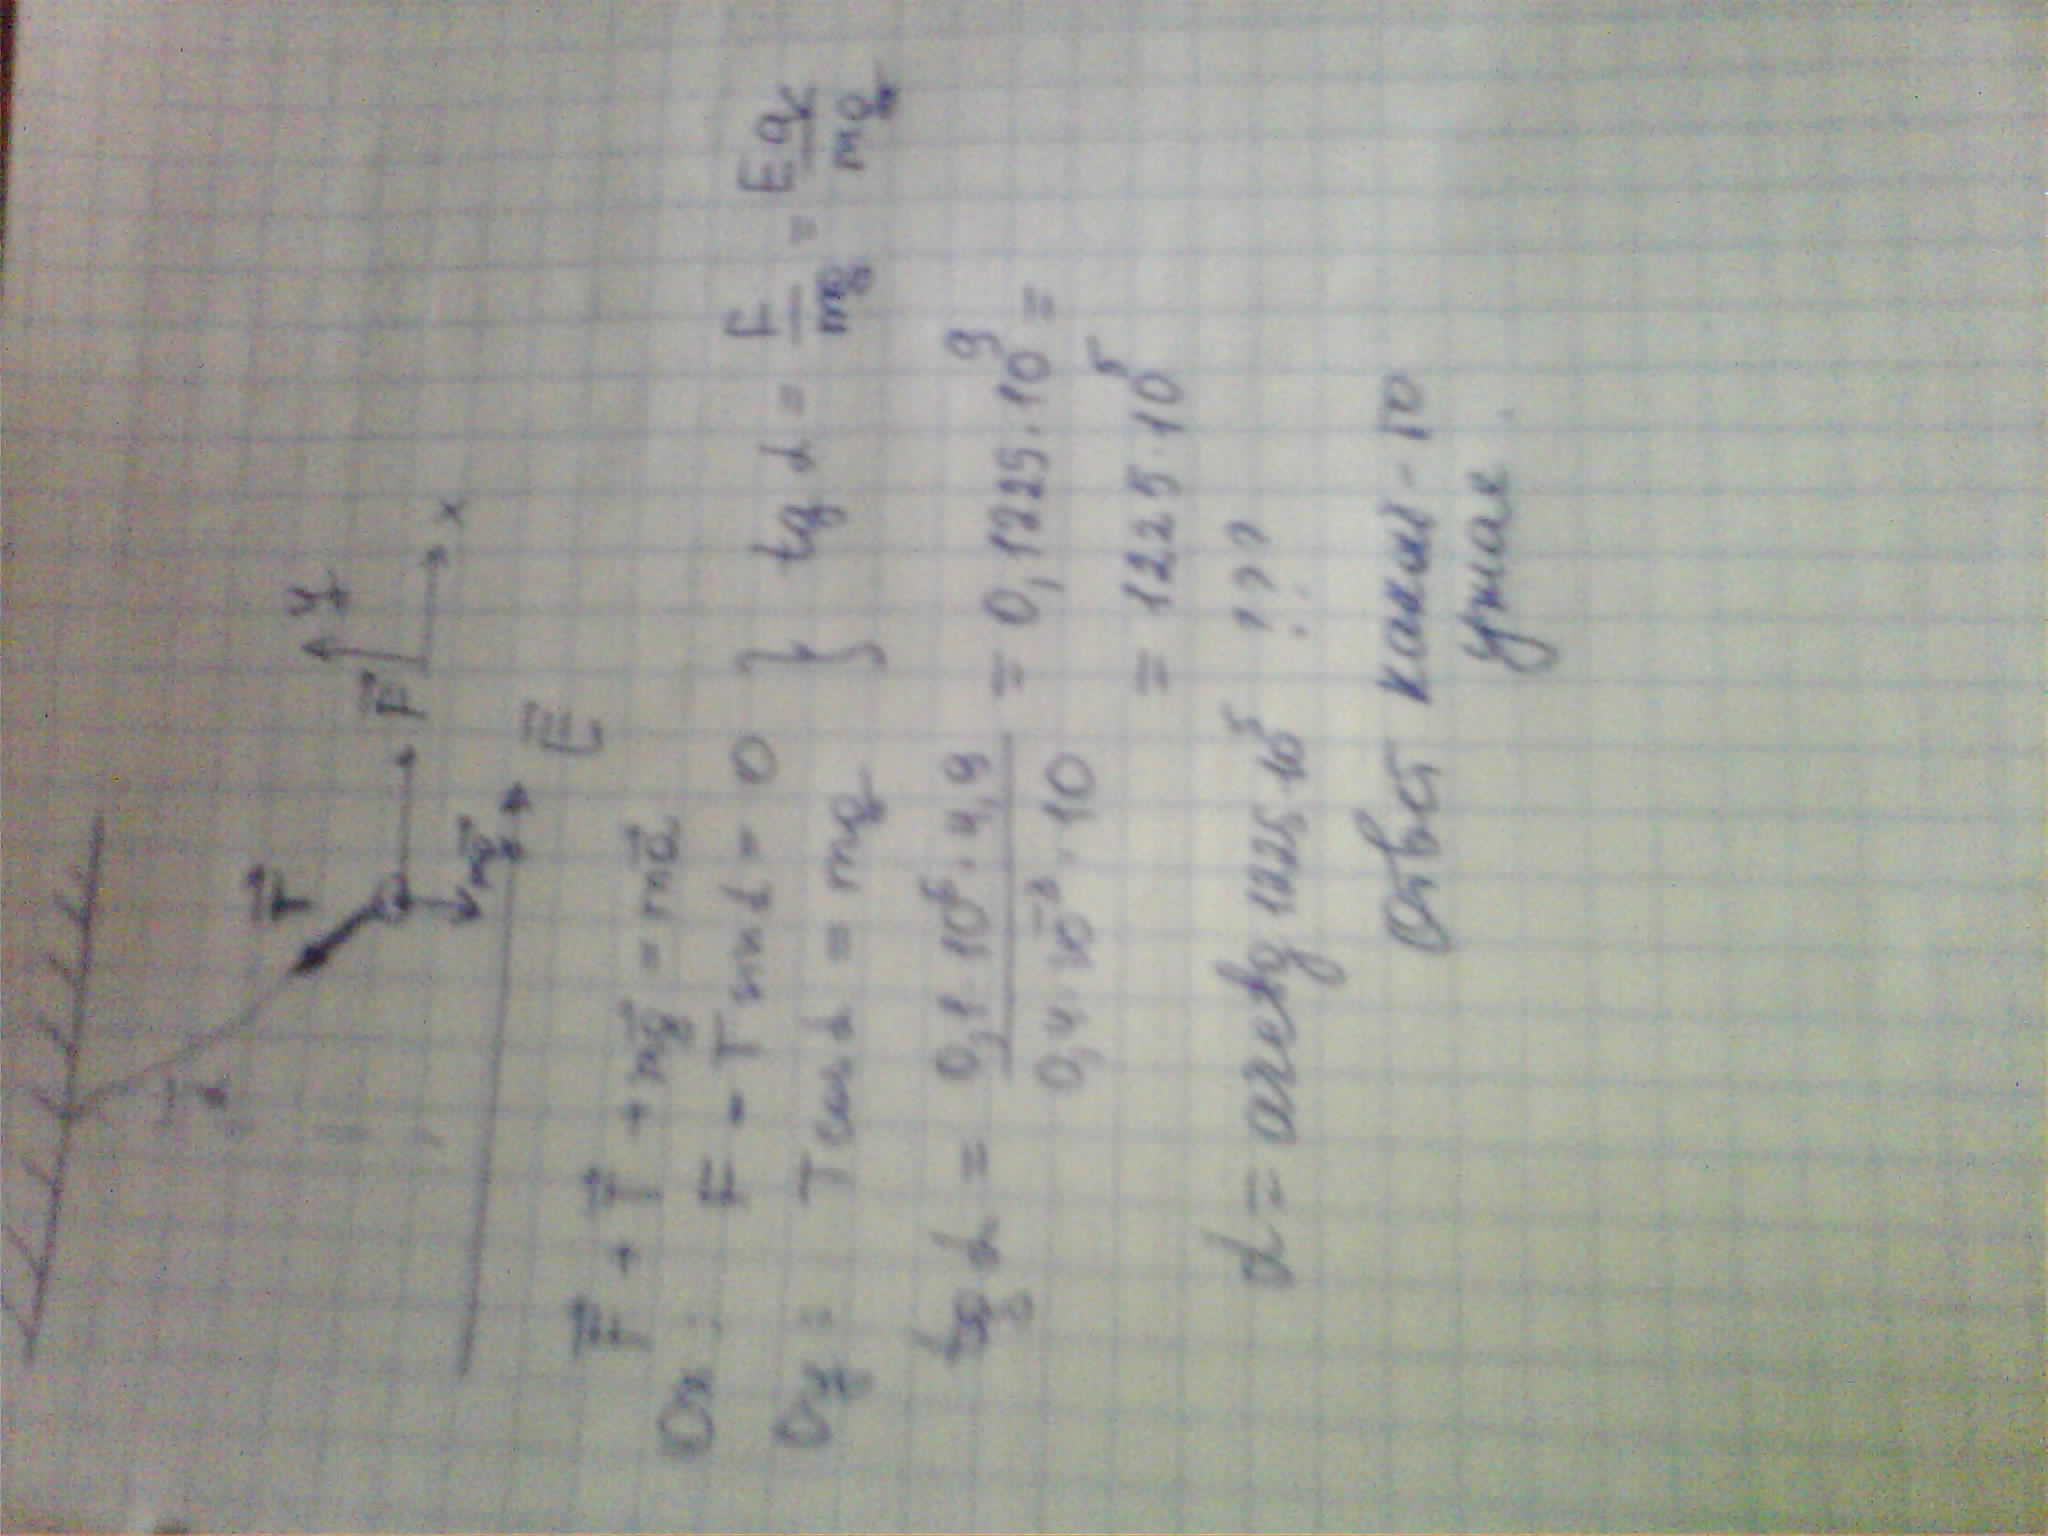 y
x
T⃗
F⃗
mg⃗
E⃗
α
F⃗ + T⃗ + mg⃗ = ma⃗
Ox: F - T sin α = 0
Oy: T cos α = mg
} tg α = F/mg = Eq/mg
tg α = 0,1·10⁶·4,9 / 0,4·10⁻³·10 = 0,1225·10⁹ =
= 1225·10⁵
α = arctg 1225·10⁵ ???
Ответ какой-то
ужас.